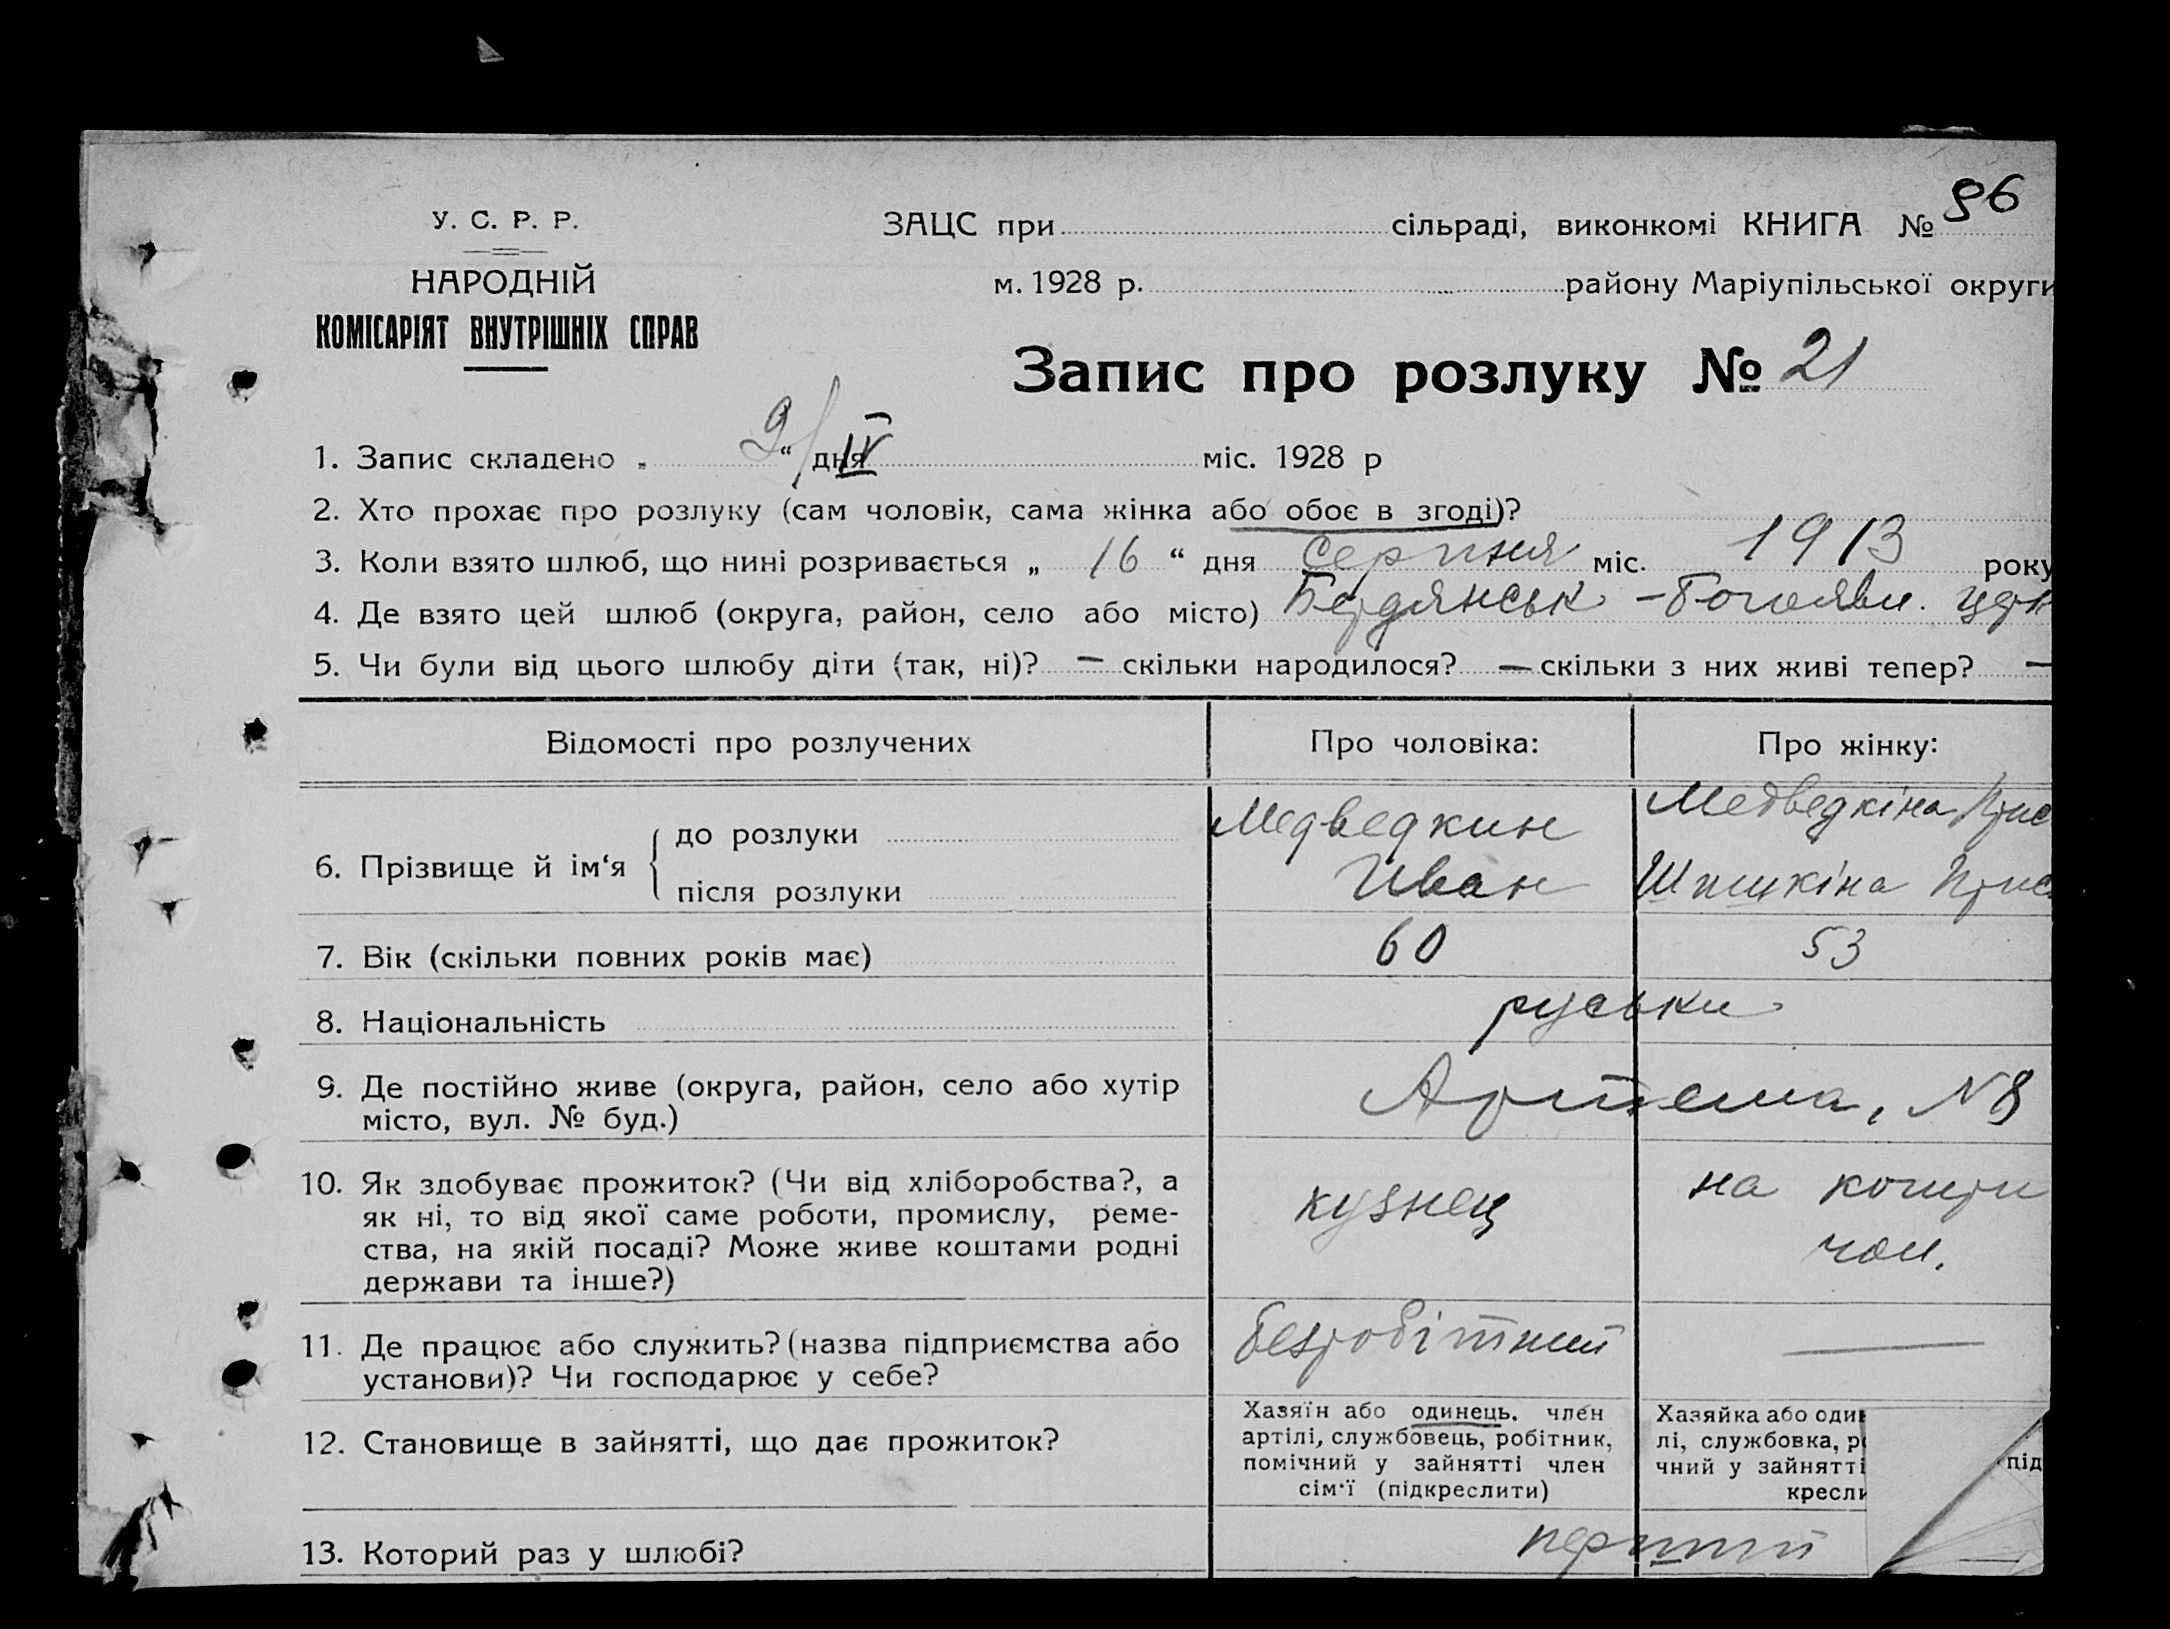 96
У. С. Р. Р.
НАРОДНІЙ
КОМІСАРІЯТ ВНУТРІШНІХ СПРАВ
ЗАЦС при сільраді, виконкомі КНИГА №
м. 1928 р. району Маріупільської округи
Запис про розлуку № 21
1. Запис складено „ 9/IV “ дня міс. 1928 р
2. Хто прохає про розлуку (сам чоловік, сама жінка або обоє в згоді)?
3. Коли взято шлюб, що нині розривається „ 16 “ дня серпня міс. 1913 року
4. Де взято цей шлюб (округа, район, село або місто) Бердянськ - Богоявл. церк
5. Чи були від цього шлюбу діти (так, ні)? — скільки народилося? — скільки з них живі тепер? —
Відомості про розлучених Про чоловіка: Про жінку:
6. Прізвище й ім‘я
до розлуки Медведкин Медведкіна
після розлуки Иван Шишкіна
7. Вік (скільки повних років має) 60 53
8. Національність руськи
9. Де постійно живе (округа, район, село або хутір Артема, N8
місто, вул. № буд.)
10. Як здобуває прожиток? (Чи від хліборобства?, а
як ні, то від якої саме роботи, промислу, реме-
ства, на якій посаді? Може живе коштами родні
держави та інше?)
кузнец на
чол.
11. Де працює або служить? (назва підприємства або
установи)? Чи господарює у себе?
безробітний —
12. Становище в зайнятті, що дає прожиток?
Хазяїн або одинець. член
артілі, службовець, робітник,
помічний у зайнятті член
сім‘ї (підкреслити)
Хазяйка або один
лі, службовка, р
чний у зайнятті під
кресли
13. Которий раз у шлюбі? перший